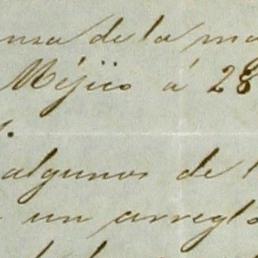 ensa de la ma
Méjico á 28
algunos de l
un arregl